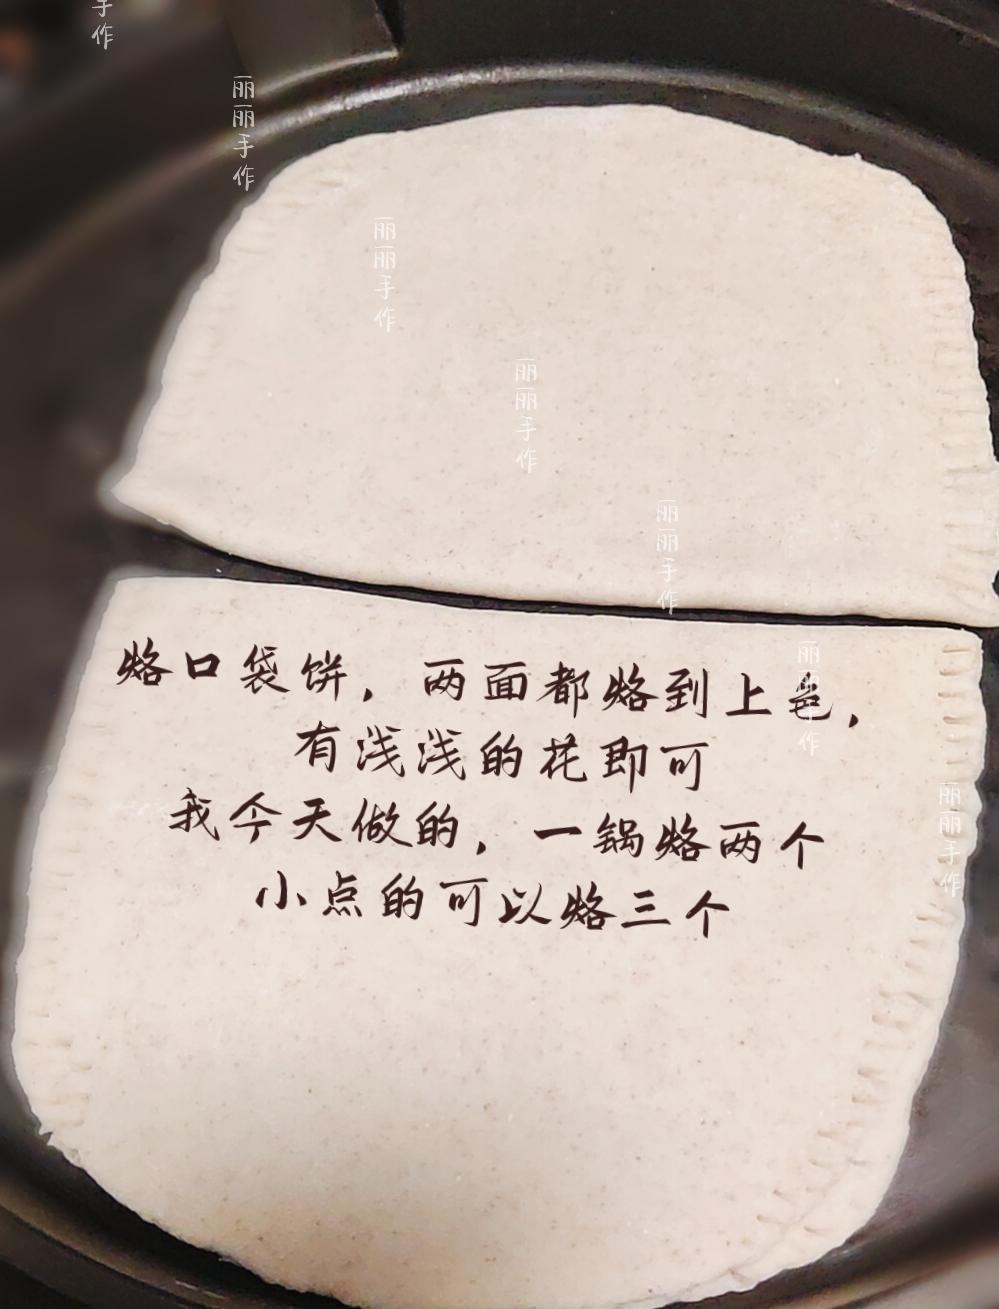 手作
丽丽手作
丽丽手作
丽丽手作
丽丽手作
丽丽手作
丽丽手作
烙口袋饼，两面都烙到上色，
有浅浅的花即可
我今天做的，一锅烙两个
小点的可以烙三个